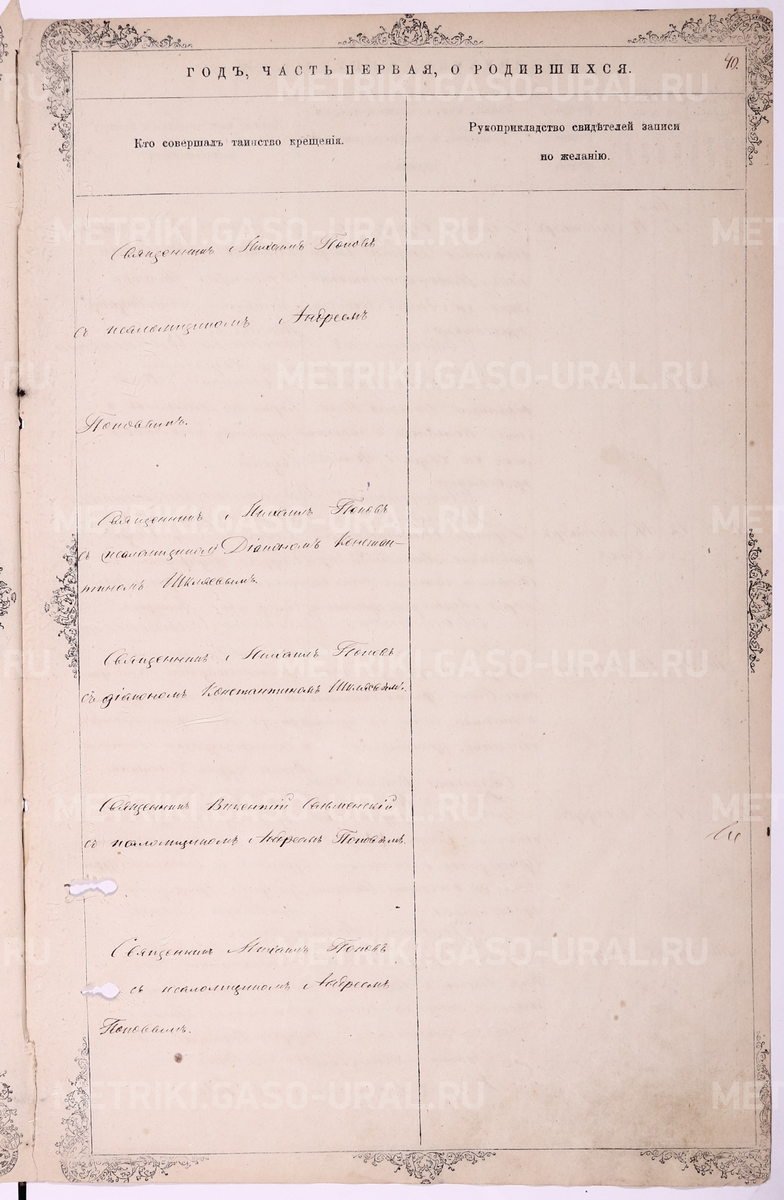 40.
ГОДЪ, ЧАСТЬ ПЕРВАЯ, О РОДИВШИХСЯ.
Кто совершалъ таинство крещенія.
Рукоприкладство свидѣтелей записи
по желанію.
Священникъ Михаилъ Поповъ
съ псаломщикомъ Андреемъ
Поповымъ.
Священникъ Михаилъ Поповъ
съ Діакономъ Констан-
тиномъ Шкляевымъ.
Священникъ Михаилъ Поповъ
съ діакономъ Константиномъ Шкляевымъ.
Священникъ Викентій Сельменскій
съ псаломщикомъ Андреемъ Поповымъ.
Священникъ Михаилъ Поповъ
съ псаломщикомъ Андреемъ
Поповымъ.
METRIKI.GASO-URAL.RU